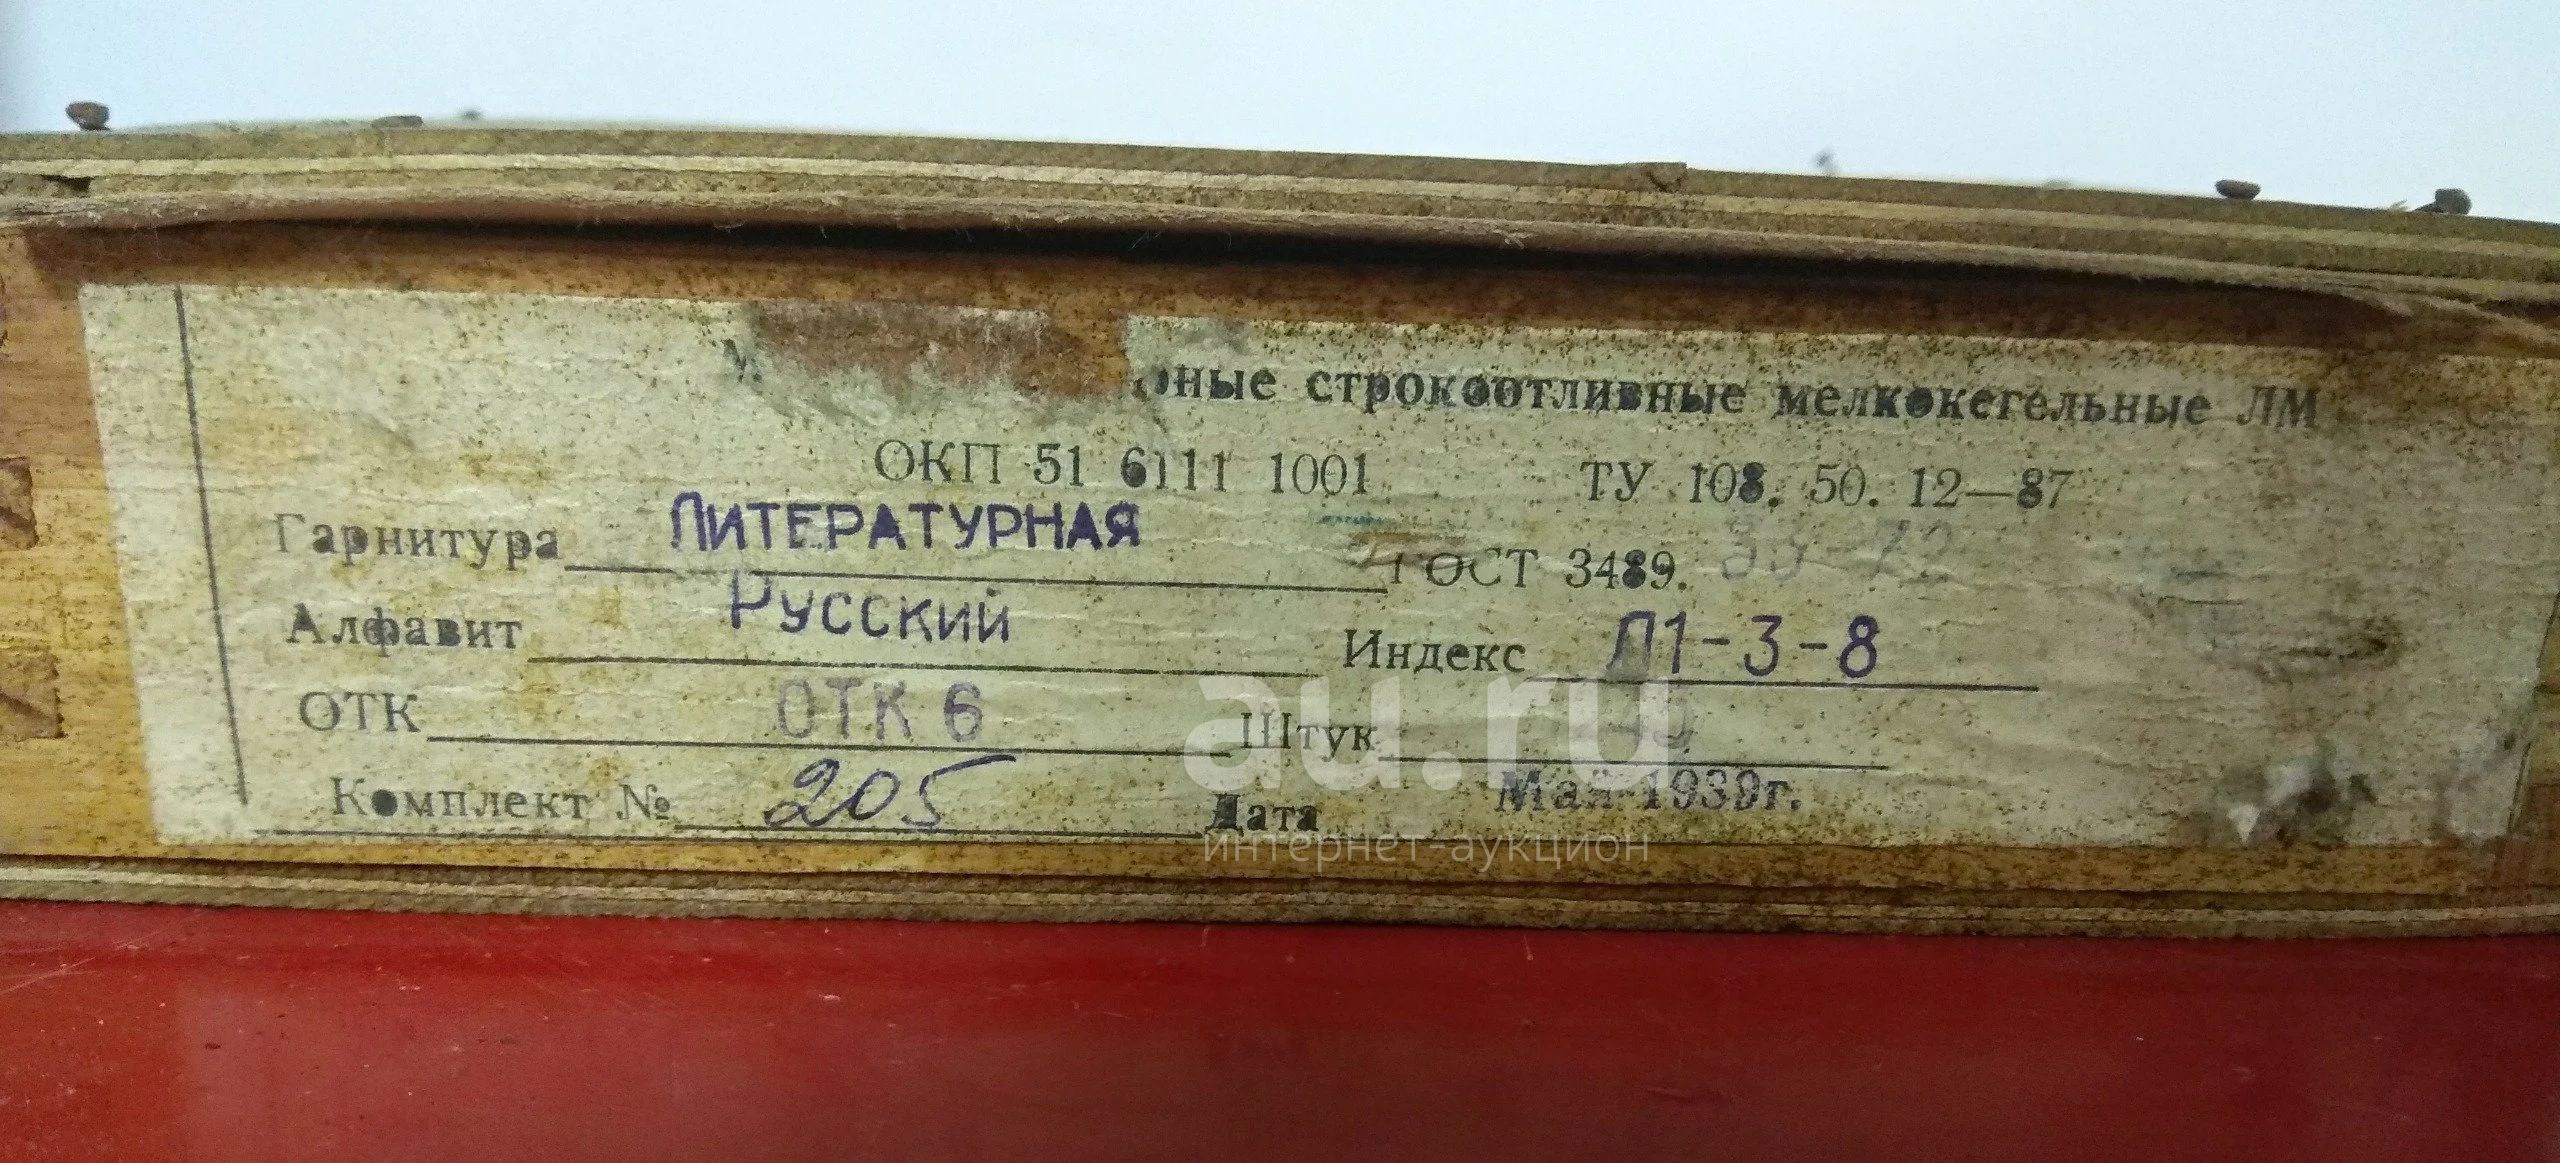 строкоотливные мелкокегельные ЛМ
ОКП 51 6111 1001 ТУ 108. 50. 12—87
Гарнитура ЛИТЕРАТУРНАЯ ГОСТ 3489. 33-72
Алфавит Русский Индекс Л1-3-8
ОТК ОТК 6 Штук
Комплект № 205 Дата Май 1989г.
au.ru
интернет-аукцион